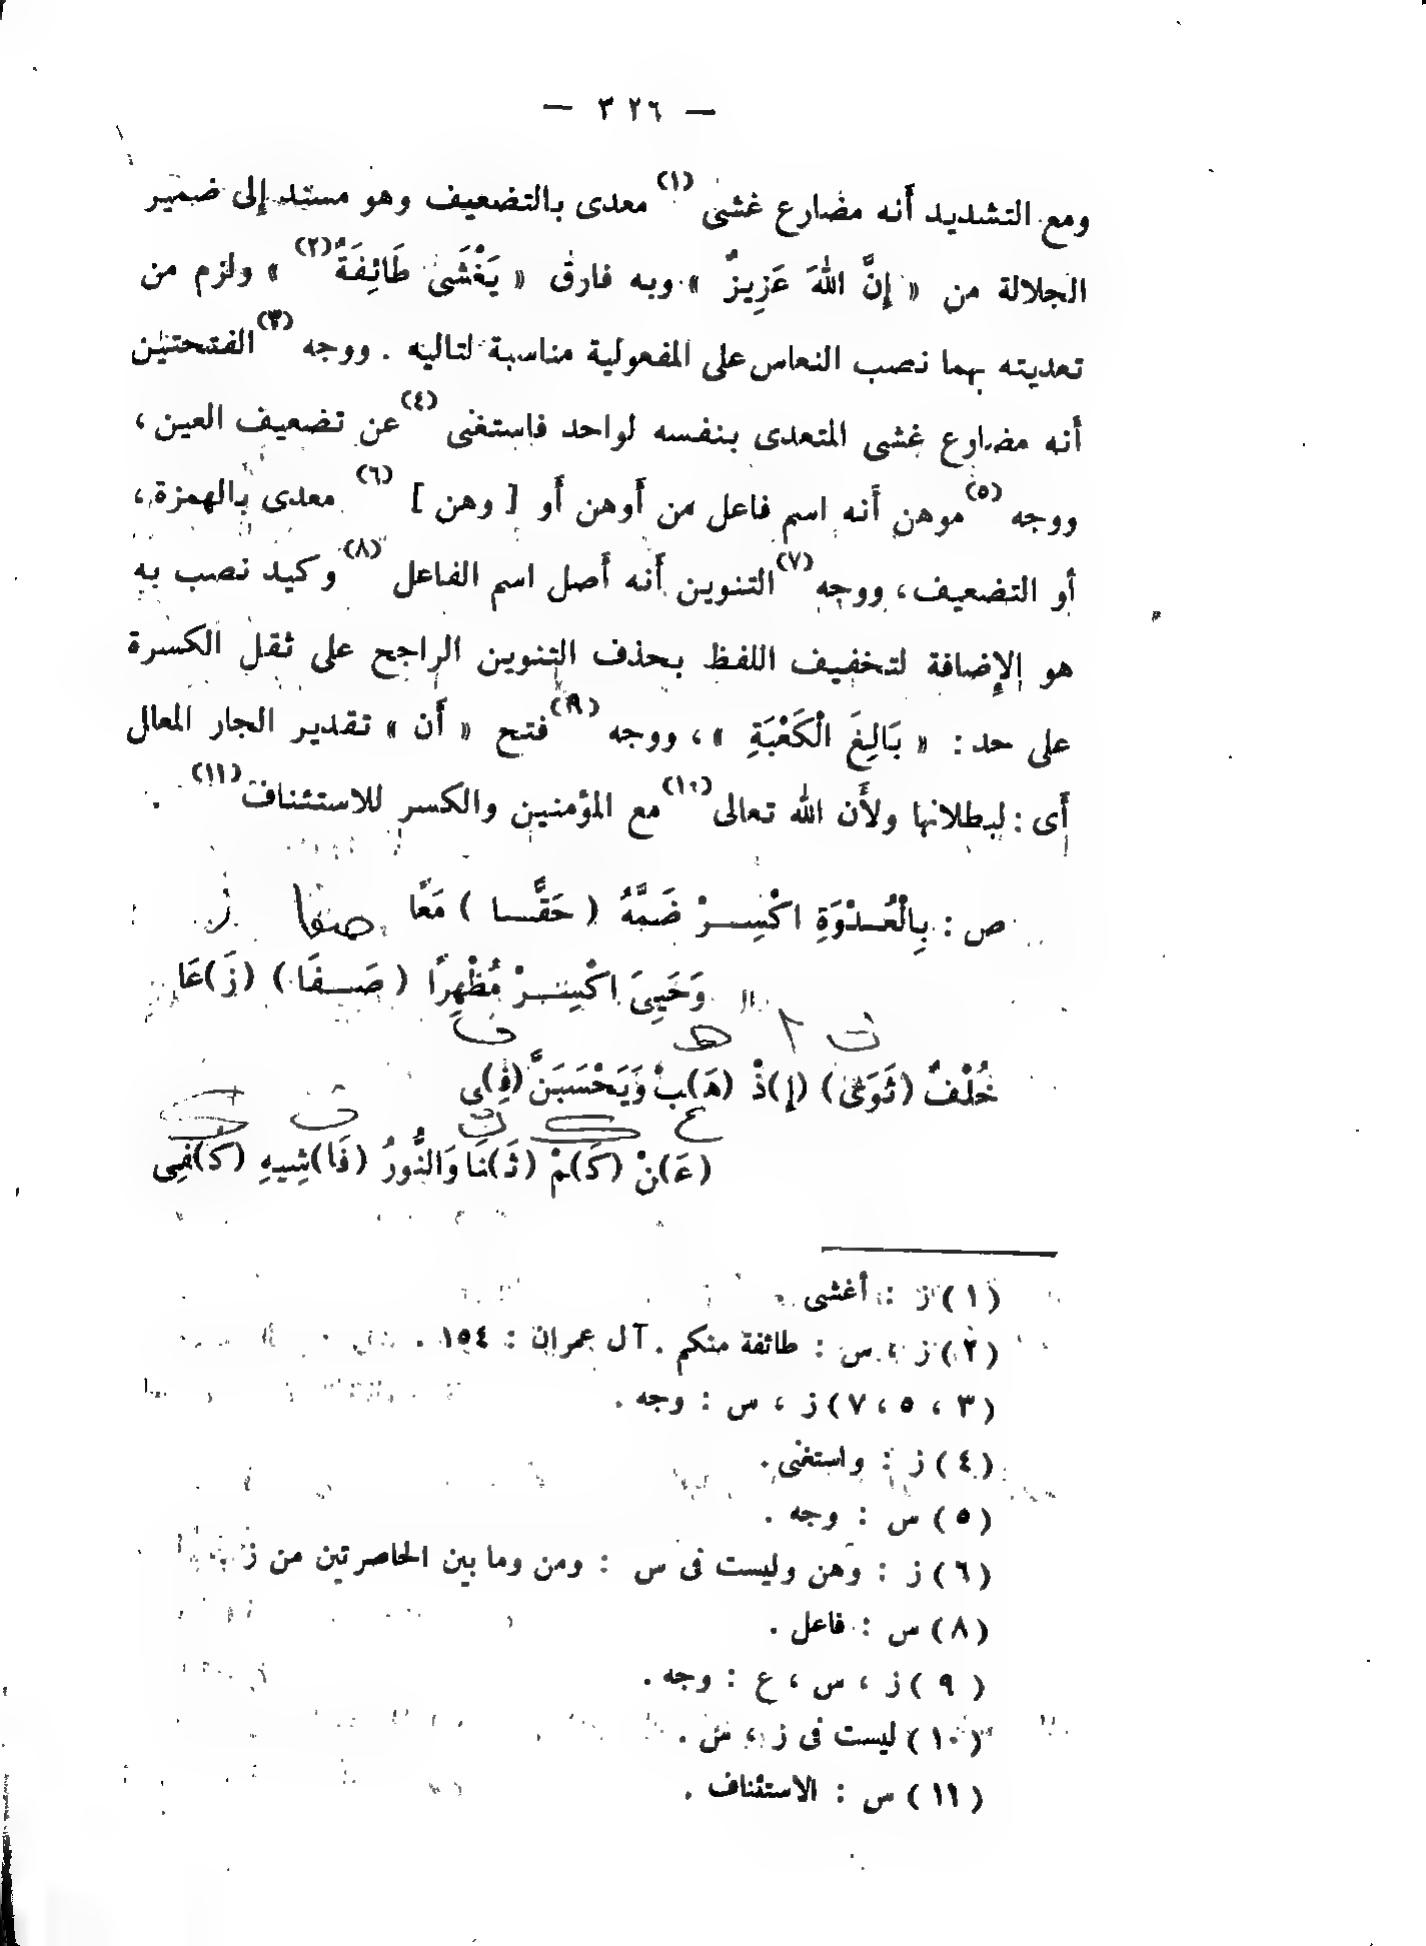 — ٣٢٦ —
ومع التشديد أَنه مضارع غشى (١) معدى بالتضعيف وهو مسند إِلى ضمير
الجلالة من « إِنَّ اللّٰهَ عَزِيزٌ » وبه فارق « يَغْشَى طَائِفَةٌ (٢) » ولزم من
تعديته بهما نصب النعاس على المفعولية مناسبة لتاليه . ووجه (٣) الفتحتين
أَنه مضارع غشى المتعدى بنفسه لواحد فاستغنى (٤) عن تضعيف العين ،
ووجه (٥) موهن أَنه اسم فاعل من أَوهن أَو [ وهن ] (٦) معدى بالهمزة ،
أو التضعيف ، ووجه (٧) التنوين أَنه أَصل اسم الفاعل (٨) وكيد نصب به
هو الإِضافة لتخفيف اللفظ بحذف التنوين الراجح على ثقل الكسرة
على حد : « بَالِغَ الْكَعْبَةِ » ، ووجه (٩) فتح « أَن » تقدير الجار المعال
أَى : لبطلانها ولأَن الله تعالى (١٠) مع المؤمنين والكسر للاستئناف (١١) .
ص : بِالْعُـدْوَةِ اكْسِـــرْ ضَمَّهُ ( حَقًّـــا ) مَعًا صفا ز
وَحَيِىَ اكْسِـــرْ مُظْهِرًا ( صَـــفَا ) (زَ)عَا
ث ا هـ ف
خُلْفٌ (ثَوَى) (إِ)ذْ (هَ)بْ وَيَحْسَبَنَّ (فِ)ى
ع ك ث ف ك
(عَ)نْ (كَ)مْ (ثَ)نَا وَالنُّورُ (فَا)شِيهِ (كَ)فِى
(١) ز : أغشى
(٢) ز ، س : طائفة منكم . آل عمران : ١٥٤ .
(٣ ، ٥ ، ٧) ز ، س : وجه .
(٤) ز : واستغنى .
(٥) س : وجه .
(٦) ز : وهن وليست فى س : ومن وما بين الحاصرتين من ز
(٨) س : فاعل .
(٩) ز ، س ، ع : وجه .
(١٠) ليست فى ز ، س .
(١١) س : الاستئناف .